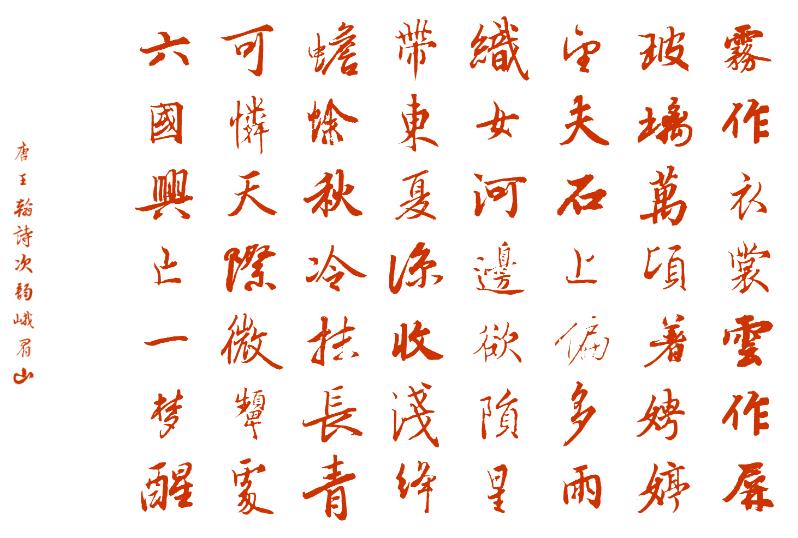 霧作衣裳雲作屏
玻璃萬頃著娉婷
望夫石上偏多雨
織女河邊欲隕星
帶東夏涼收淺絳
蟾蜍秋冷拮長青
可憐天際微顰處
六國興亡一梦醒
唐王翰詩次韵峨眉山